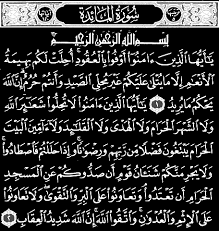 سورة المائدة
بسم الله الرحمن الرحيم
يا أيها الذين ءامنوا أوفوا بالعقود أحلت لكم بهيمة
الأنعم إلا ما يتلى عليكم غير محلي الصيد وأنتم حرم إن الله
يحكم ما يريد ١ يا أيها الذين ءامنوا لا تحلوا شعئر الله
ولا الشهر الحرام ولا الهدي ولا القلئد ولا ءامين البيت
الحرام يبتغون فضلا من ربهم ورضونا وإذا حللتم فاصطادوا
ولا يجرمنكم شنئان قوم أن صدوكم عن المسجد
الحرام أن تعتدوا وتعاونوا على البر والتقوى ولا تعاونوا
على الإثم والعدون واتقوا الله إن الله شديد العقاب ٢